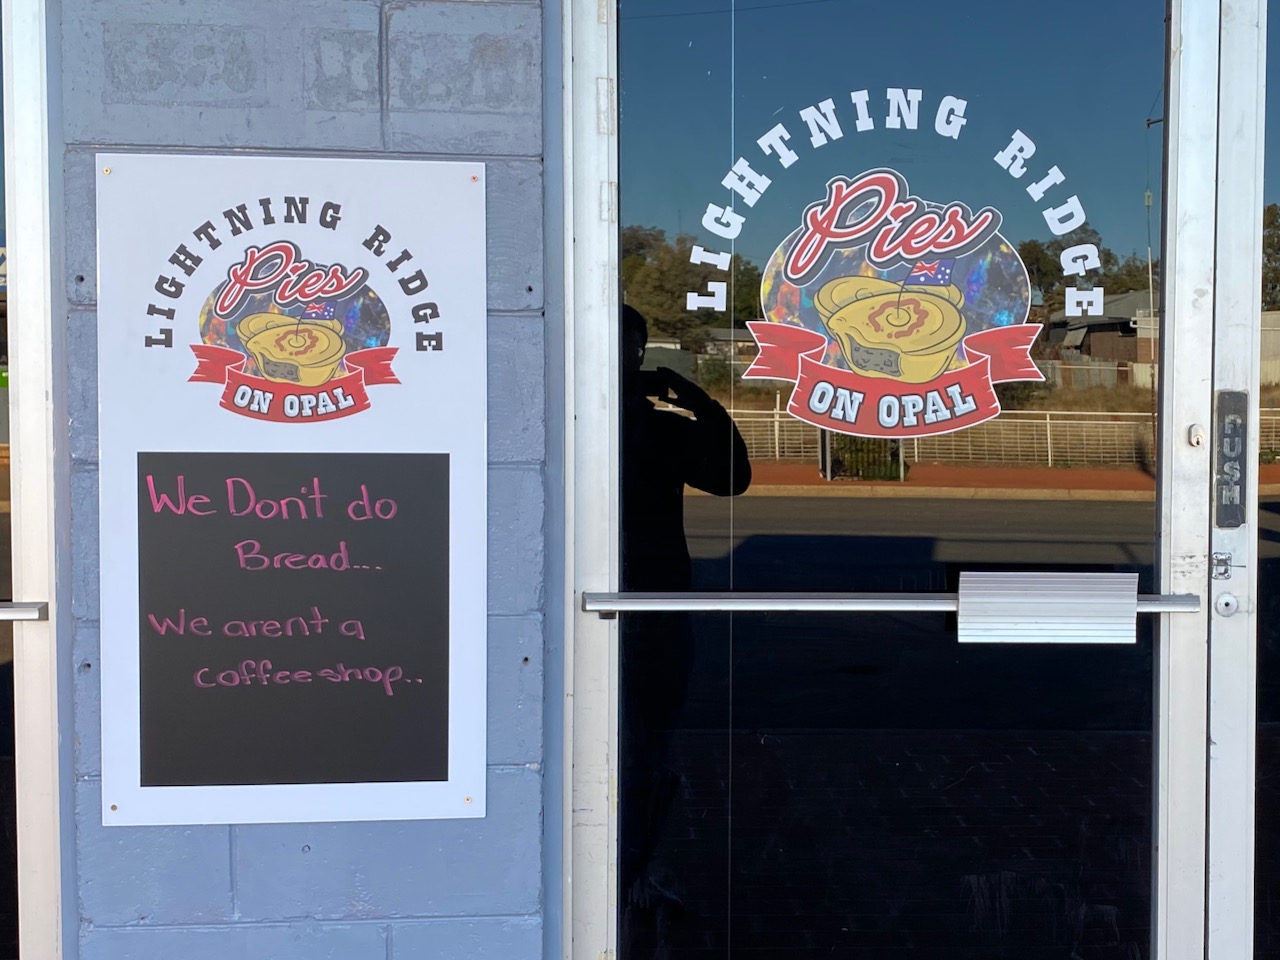 LIGHTNING RIDGE
Pies
ON OPAL
We Don't do
Bread...
We arent a
coffee shop..
LIGHTNING RIDGE
Pies
ON OPAL
PUSH